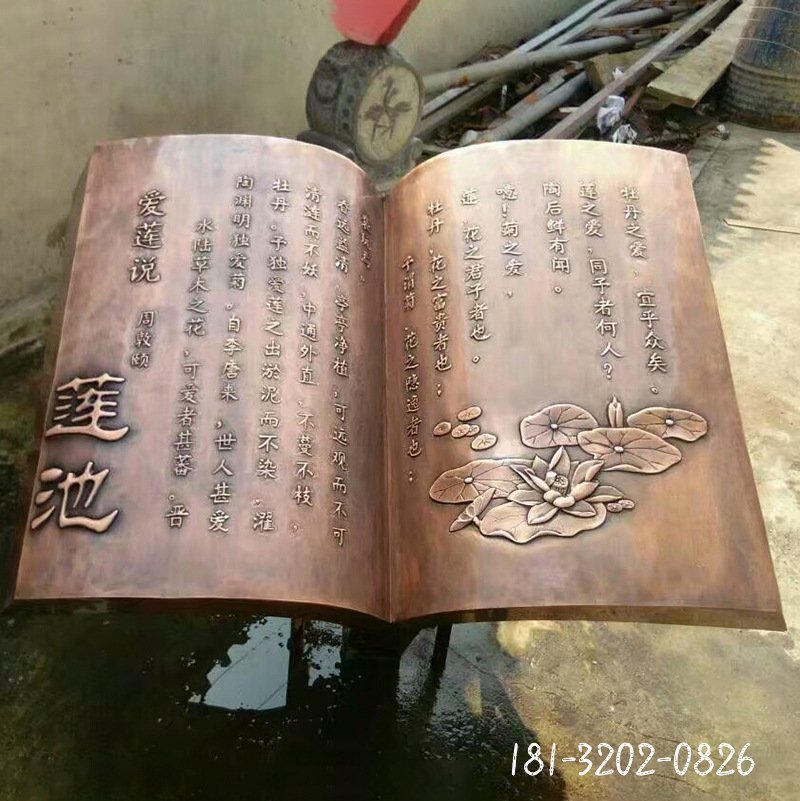 莲池
爱莲说
周敦颐
水陆草木之花，可爱者甚蕃。晋
陶渊明独爱菊。自李唐来，世人甚爱
牡丹。予独爱莲之出淤泥而不染，濯
清涟而不妖，中通外直，不蔓不枝，
香远益清，亭亭净植，可远观而不可
亵玩焉。
予谓菊，花之隐逸者也；
牡丹，花之富贵者也；
莲，花之君子者也。
噫！菊之爱，
陶后鲜有闻。
莲之爱，同予者何人？
牡丹之爱，宜乎众矣。
181-3202-0826